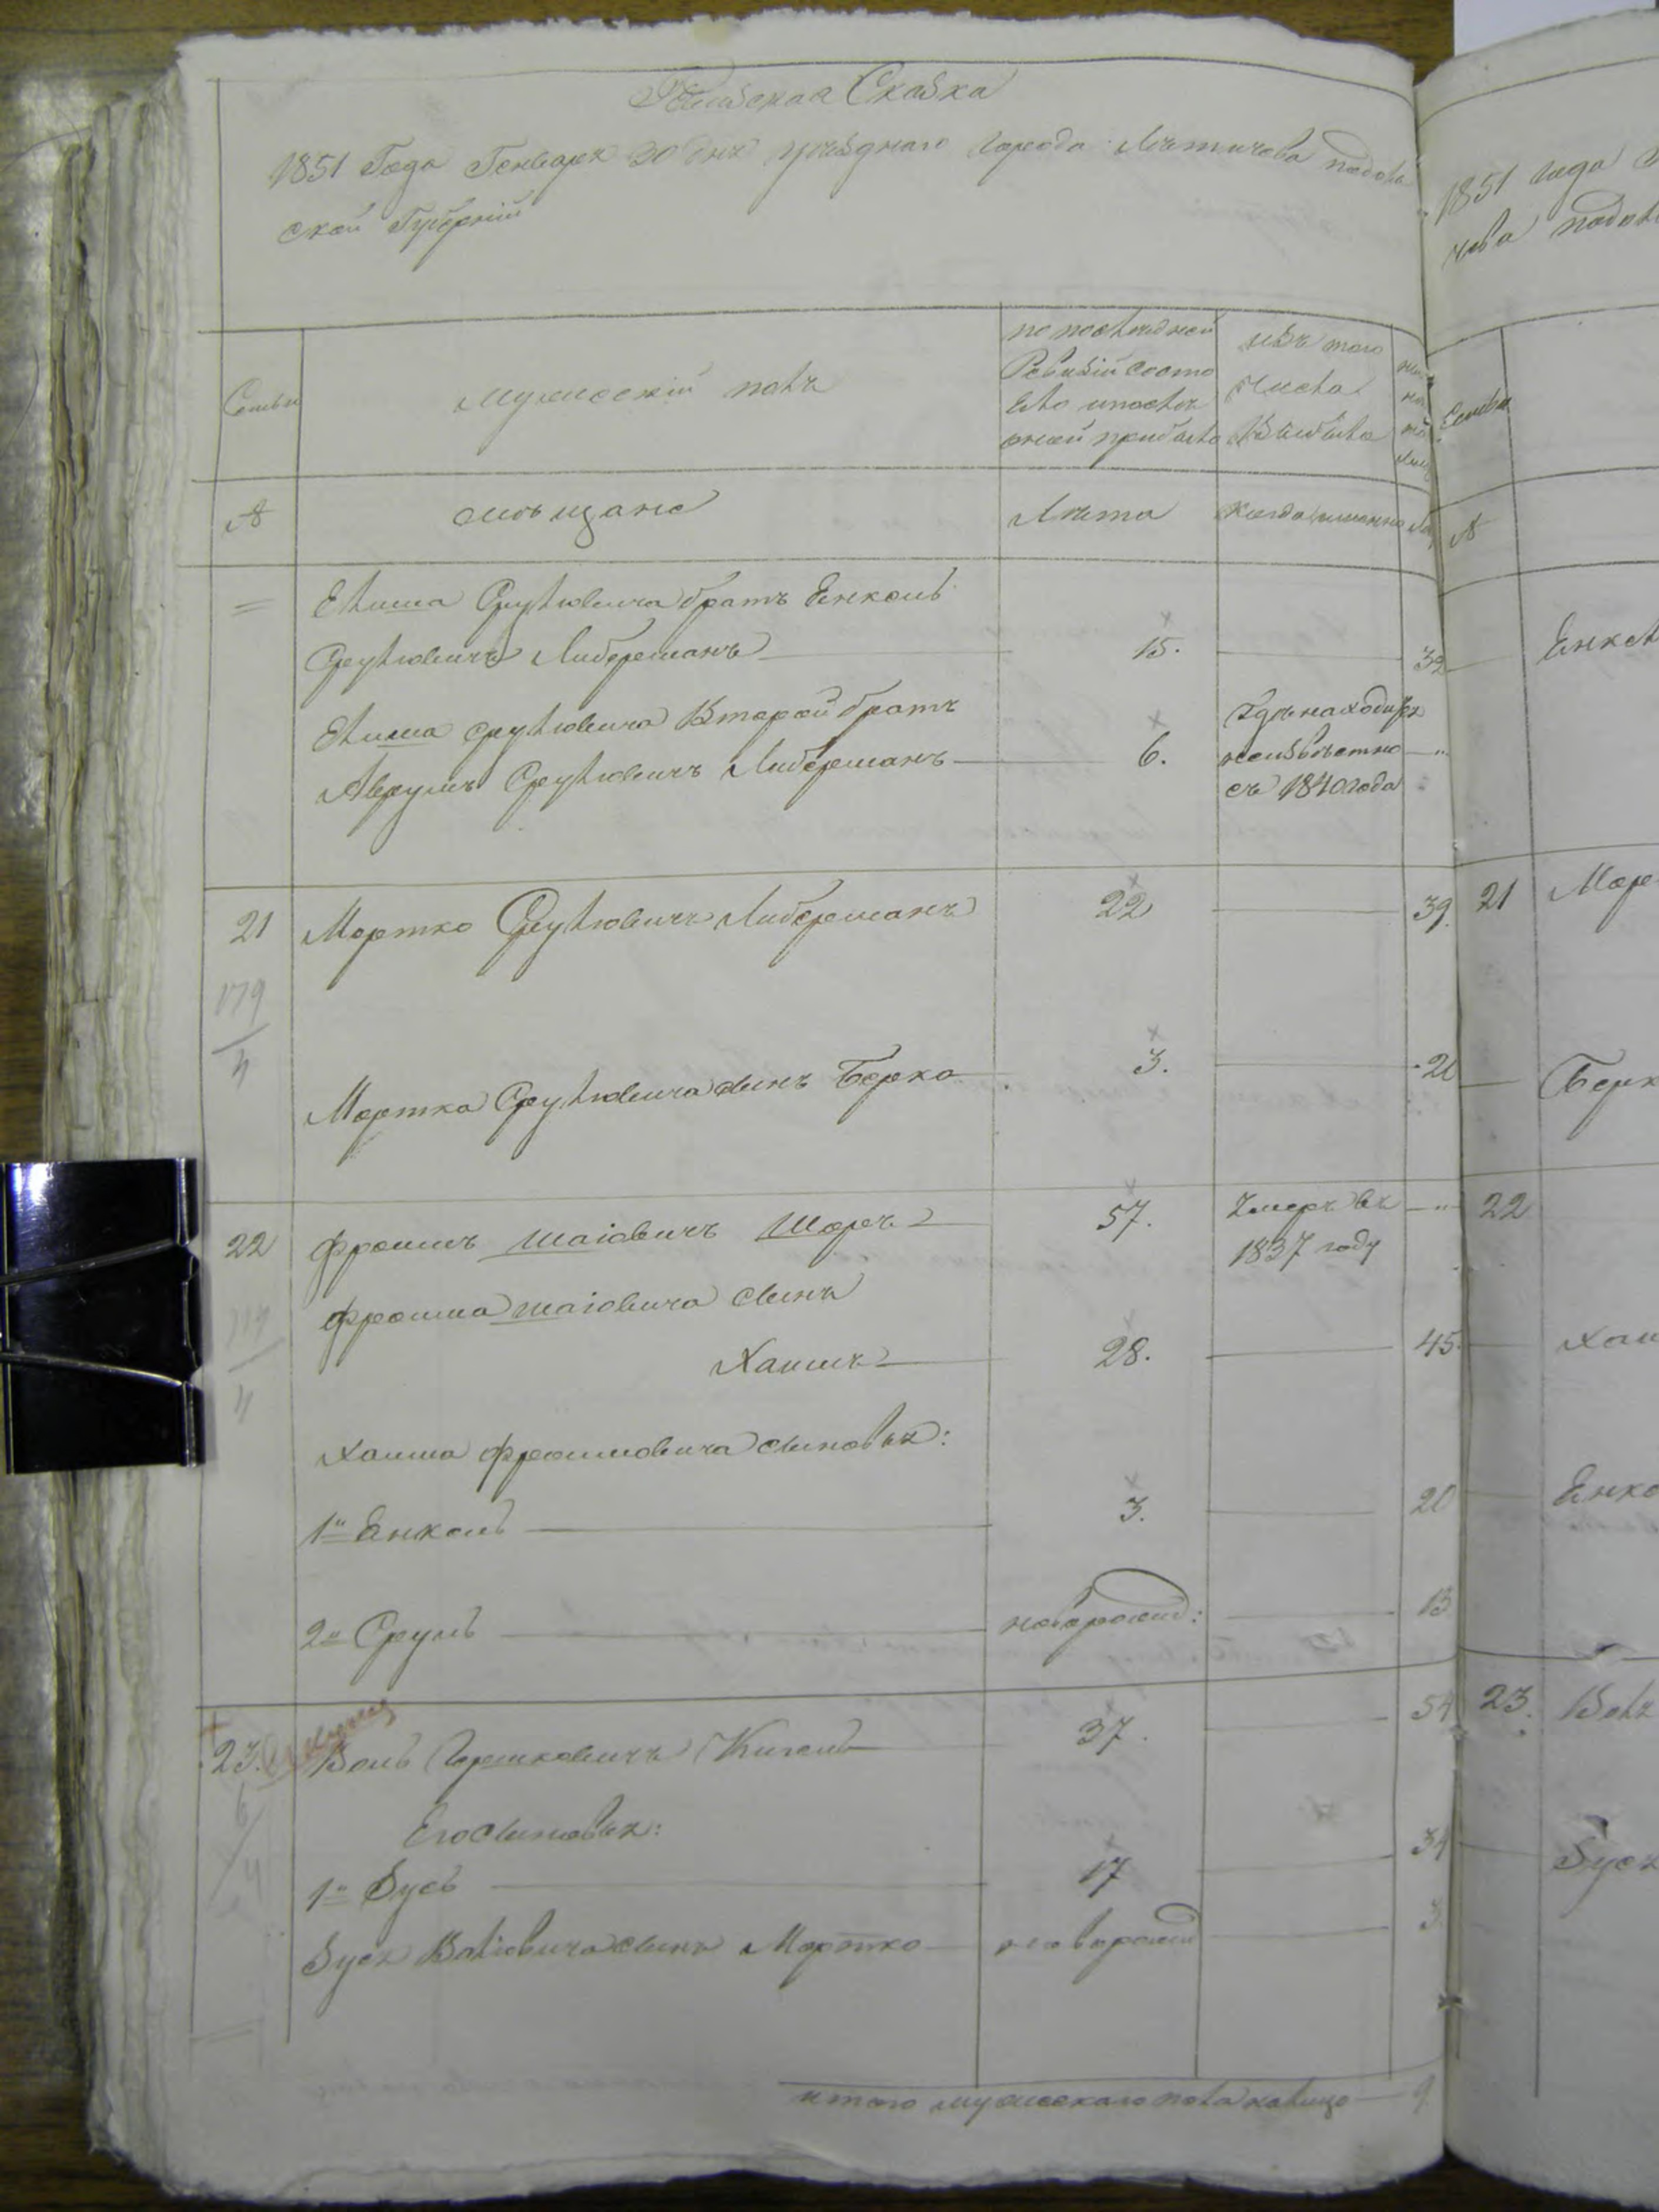 Ревизская Сказка
1851 Года Генваря 30 дня уѣзднаго города Летичева Подоль
ской Губерніи
Семьи
мужескій полъ
по послѣдней
Ревизіи состо
яло и послѣ
оной прибыло
изъ того
числа
выбыло
№
мѣщане
Лѣта
когда именно
=
Елима Срулювича братъ Янкель
Срулювичъ Либерманъ
15.
32
Елима Срулювича Второй братъ
Аврумъ Срулювичъ Либерманъ
6.
гдѣ находится
неизвѣстно
съ 1840 года
21
Мортко Срулювичъ Либерманъ
22
39
179
4
Мортка Срулювича сынъ Берко
3.
20
22
Фроимъ Шаіовичъ Шоръ
57.
Умеръ въ
1837 году
Фроима Шаіовича сынъ
Хаимъ
28.
45
Хаима Фроимовича сыновья:
1й Янкель
3.
20
2й Сруль
новорожд:
13
23.
Воль Гершковичъ Кигель
37.
54
Его сыновья:
1й Зусь
17
34
Зуся Волювича сынъ Мортко
новорожд
3
итого мужескаго пола налицо 9
1851 года
чева Подол
Семьи
№
Янкел
21 Мор
Берк
22
Хаи
Янке
23. Воля
Зуся